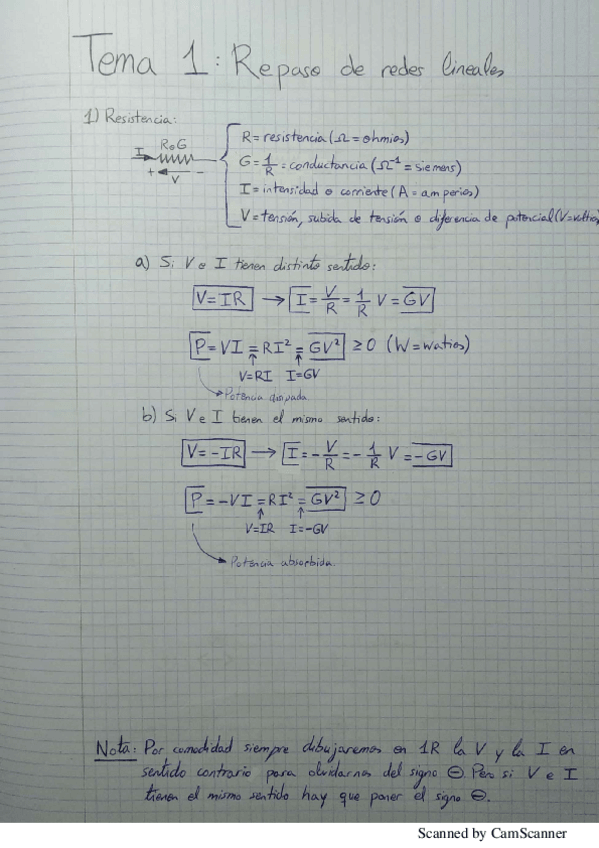 Tema 1: Repaso de redes lineales
1) Resistencia:
R o G
I
+ V -
R = resistencia (Ω = ohmios)
G = 1/R = conductancia (Ω⁻¹ = siemens)
I = intensidad o corriente (A = amperios)
V = tensión, subida de tensión o diferencia de potencial (V = voltios
a) Si V e I tienen distinto sentido:
V = IR → I = V/R = 1/R V = GV
P = VI = RI² = GV² ≥ 0 (W = watios)
V=RI I=GV
Potencia disipada
b) Si V e I tienen el mismo sentido:
V = -IR → I = -V/R = -1/R V = -GV
P = -VI = RI² = GV² ≥ 0
V=IR I=-GV
Potencia absorbida.
Nota: Por comodidad siempre dibujaremos en 1R la V y la I en
sentido contrario para olvidarnos del signo ⊖. Pero si V e I
tienen el mismo sentido hay que poner el signo ⊖.
Scanned by CamScanner